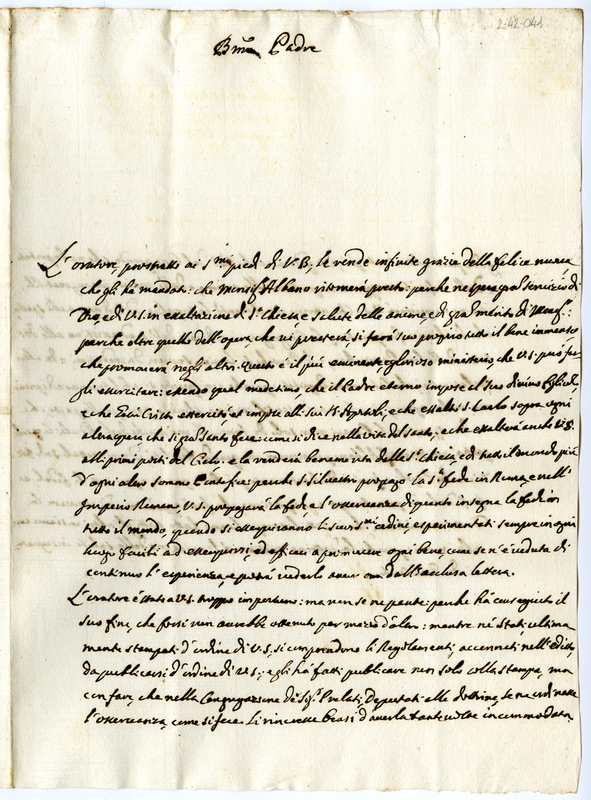 2-42-041
Bmo Padre
L'oratore, prostrato ai Smi piedi di V. B., le rende infinite grazie della felice nuova
che gli hà mandato: che Monsigr Albano ritornerà presto: perche ne spera gran servizio di
Dio, e di V.S. in exaltazione di Sta Chiesa, e salute delle anime, e di gran merito di Monsr:
perche oltre quello dell'opera, che vi presterà, si farà suo proprio tutto il bene immenso
che promoverà negli altri. Questo è il più eminente, e glorioso ministerio, che V.S. può far
gli esercitare: essendo quel medesimo, che il Padre eterno impose al suo divino Figliolo,
e che Giesù Cristo esercitò, et impose alli suoi S. Apostoli; e che esaltò S. Carlo sopra ogni
altra opera che si può santo fare: come si dice nella vita del santo; e che exalterà anche V.S.
alli primi posti del Cielo: e la renderà benemerita della Sta Chiesa, e di tutto il mondo più
d'ogni altro sommo Pontefice: perche S. Silvestro propagò la Sta fede in Roma, e nell'
Imperio Romano, V.S. propagarà la fede, e l'osservanza di quanto insegna la fede in
tutto il mondo, quando si eseguiranno li suoi Smi ordini, esperimentati sempre in ogni
luogo facili ad eseguirsi, ed efficaci a promovere ogni bene, come se n'è veduta di
continuo l'esperienza, e potrà vederlo ancor ora dall'acclusa lettera.
L'oratore è stato a V.S. troppo importuno: ma non se ne pente: perche hà conseguito il
suo fine, che forsi non averebbe ottenuto per mezo d'altri: mentre nè stati ultima
mente stampati d'ordine di V.S. si comprendono li Regolamenti accennati nell'editto
da publicarsi d'ordine di V.S.; e gli hà fatti publicare non solo colla stampa, ma
con fare, che nella Congregazione de Sigri Prelati Deputati alle dottrine, se ne ordinasse
l'osservanza, come si fece. Li rincresce bensì d'averla tante volte incommodata,